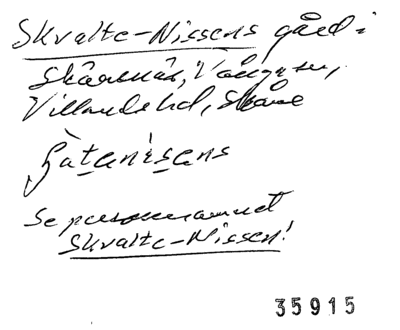 Skvalte-Nissens gård i
Skårsnäs, Vånga sn,
Villands hd, Skåne
Gatenisans
Se personnamnet
Skvalte-Nissen!
35915